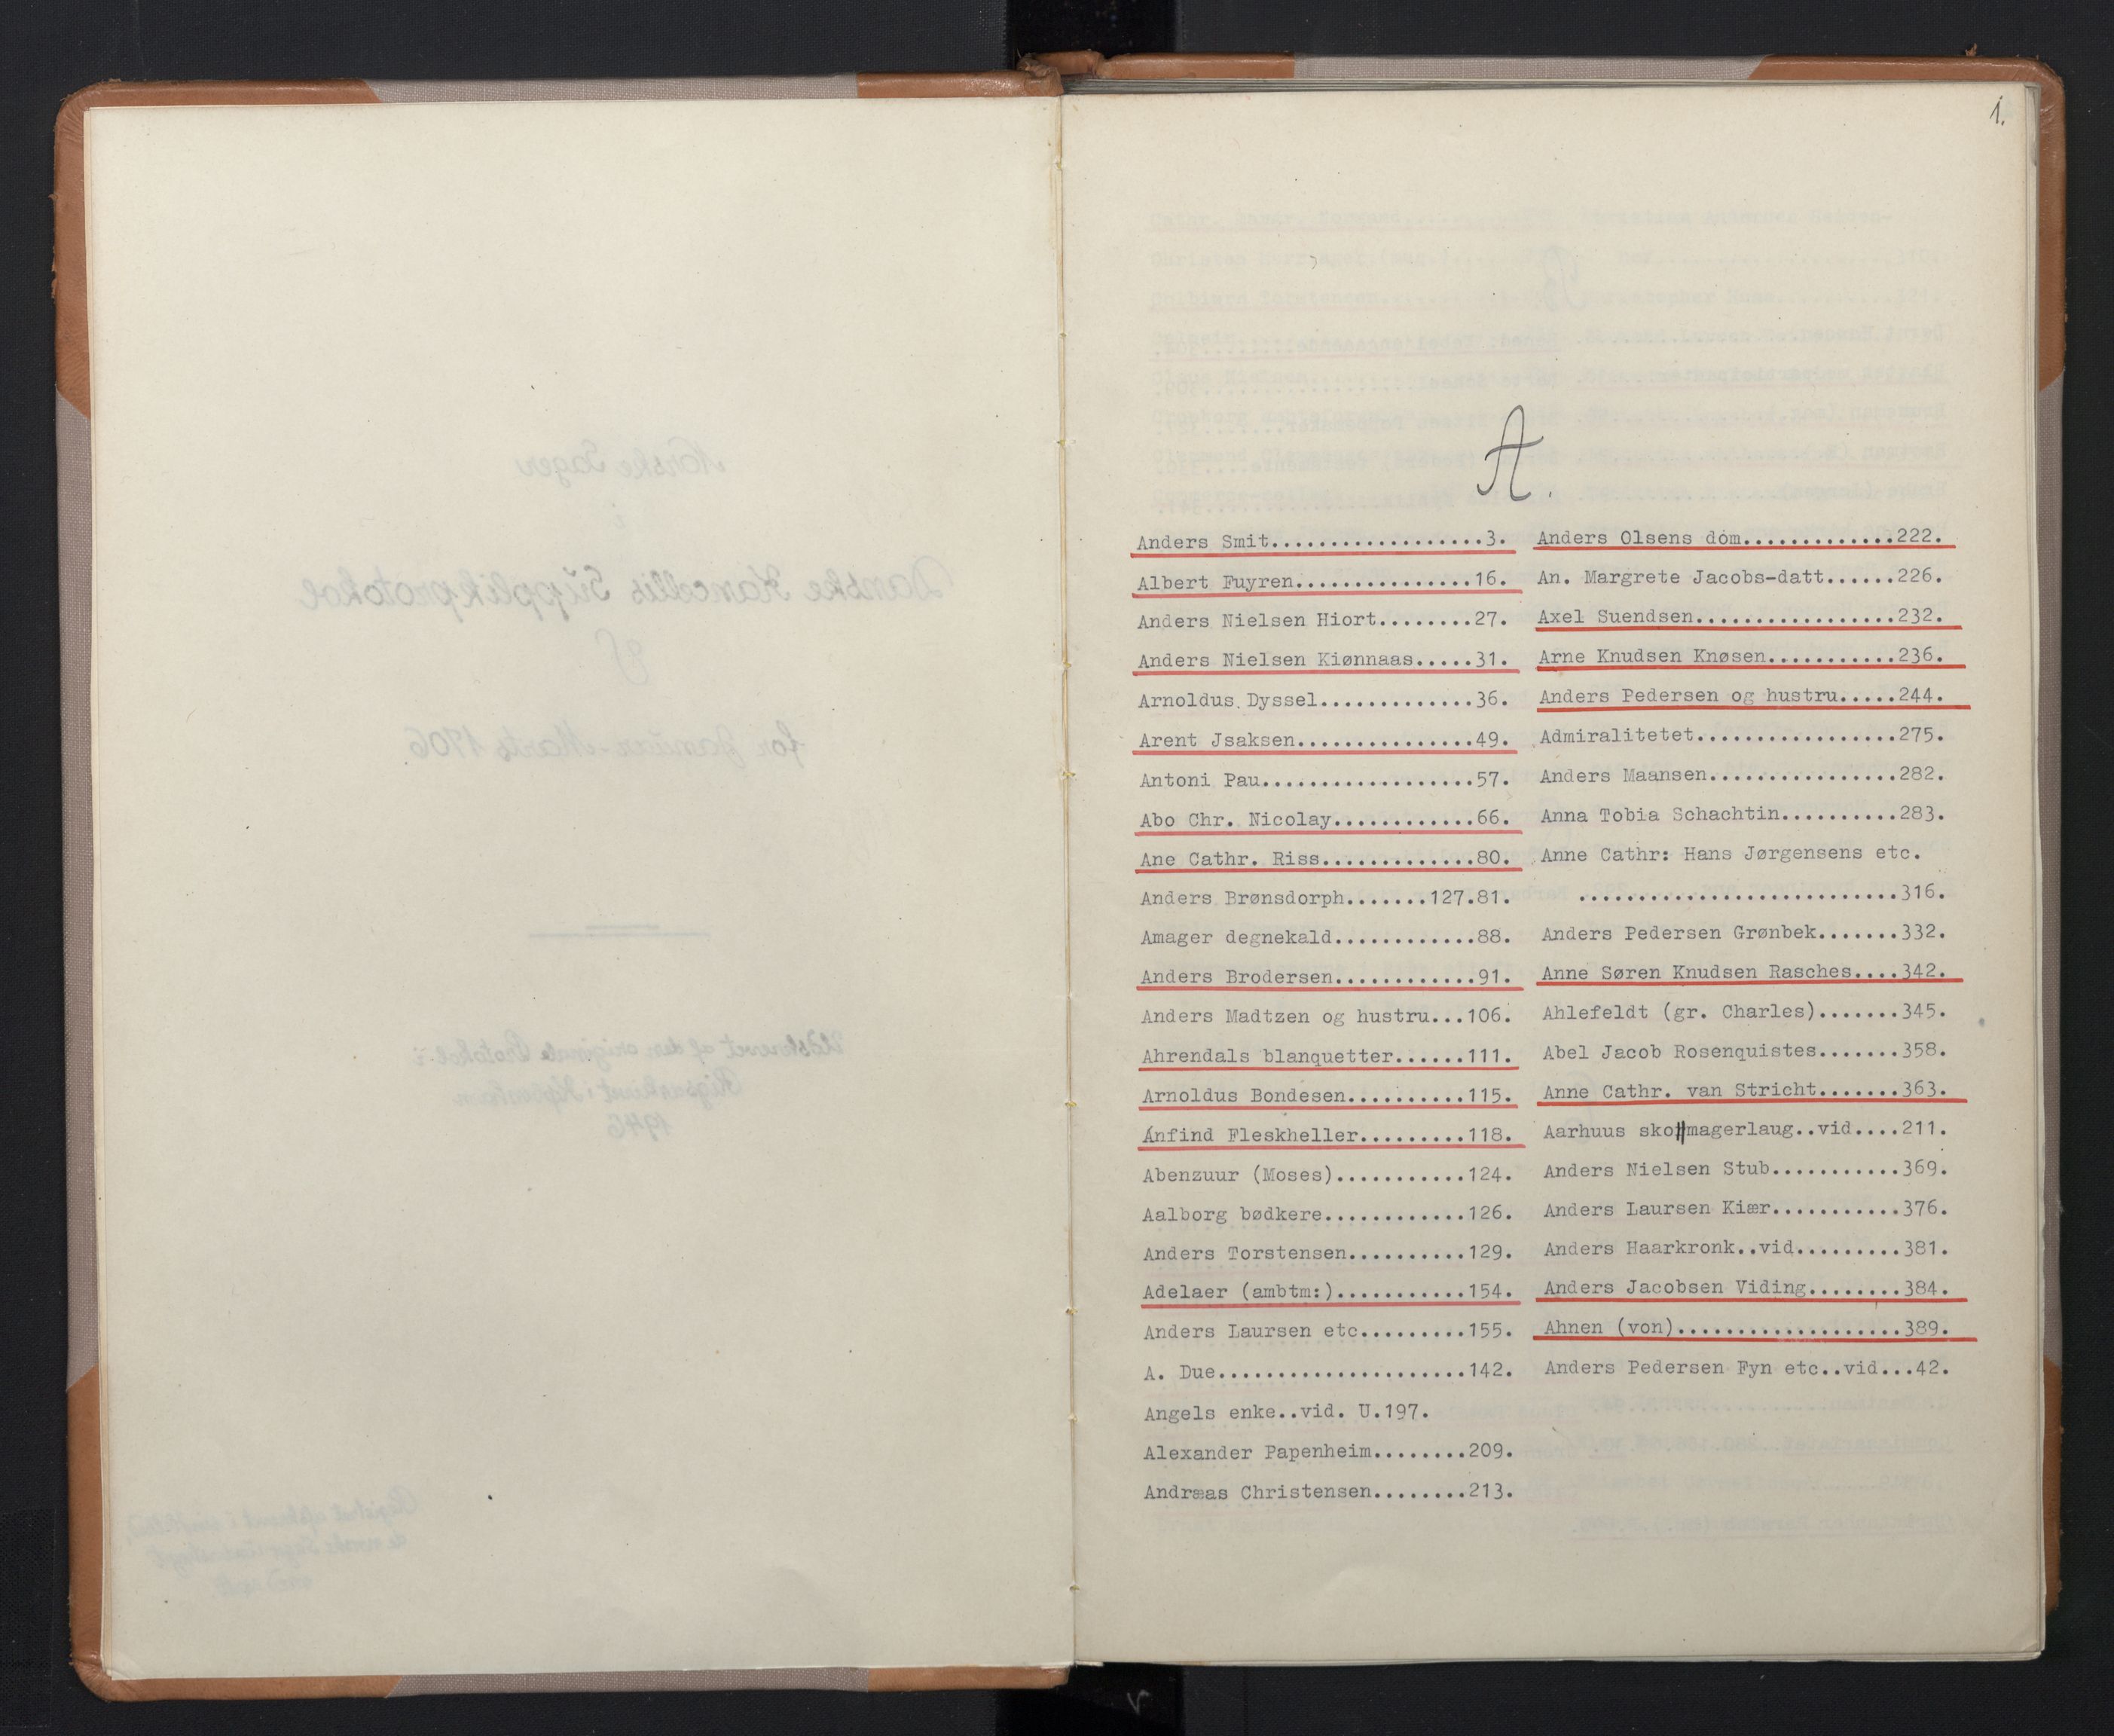 1.
A.
Anders Smit..................3.
Albert Fuyren...............16.
Anders Nielsen Hiort........27.
Anders Nielsen Kiønnaas.....31.
Arnoldus Dyssel.............36.
Arent Jsaksen...............49.
Antoni Pau..................57.
Abo Chr. Nicolay............66.
Ane Cathr. Riss.............80.
Anders Brønsdorph.......127.81.
Amager degnekald............88.
Anders Brodersen............91.
Anders Madtzen og hustru...106.
Ahrendals blanquetter......111.
Arnoldus Bondesen..........115.
Ánfind Fleskheller.........118.
Abenzuur (Moses)...........124.
Aalborg bødkere............126.
Anders Torstensen..........129.
Adelaer (ambtm:)...........154.
Anders Laursen etc.........155.
A. Due.....................142.
Angels enke..vid. U.197.
Alexander Papenheim........209.
Andræas Christensen........213.
Anders Olsens dom.............222.
An. Margrete Jacobs-datt......226.
Axel Suendsen.................232.
Arne Knudsen Knøsen...........236.
Anders Pedersen og hustru.....244.
Admiralitetet.................275.
Anders Maansen................282.
Anna Tobia Schachtin..........283.
Anne Cathr: Hans Jørgensens etc.
...........................316.
Anders Pedersen Grønbek.......332.
Anne Søren Knudsen Rasches....342.
Ahlefeldt (gr. Charles).......345.
Abel Jacob Rosenquistes.......358.
Anne Cathr. van Stricht.......363.
Aarhuus skomagerlaug..vid....211.
Anders Nielsen Stub...........369.
Anders Laursen Kiær...........376.
Anders Haarkronk..vid.........381.
Anders Jacobsen Viding........384.
Ahnen (von)...................389.
Anders Pedersen Fyn etc..vid...42.